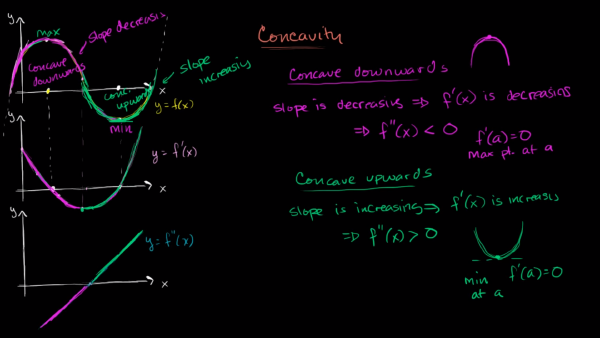 y
max
slope decreasing
Concave
downwards
slope
increasing
conc.
upward
x
y = f(x)
min
y
y = f'(x)
x
y
y = f''(x)
x
Concavity
Concave downwards
slope is decreasing ⇒ f'(x) is decreasing
⇒ f''(x) < 0
f'(a) = 0
max pt. at a
Concave upwards
slope is increasing ⇒ f'(x) is increasing
⇒ f''(x) > 0
min
at a
f'(a) = 0